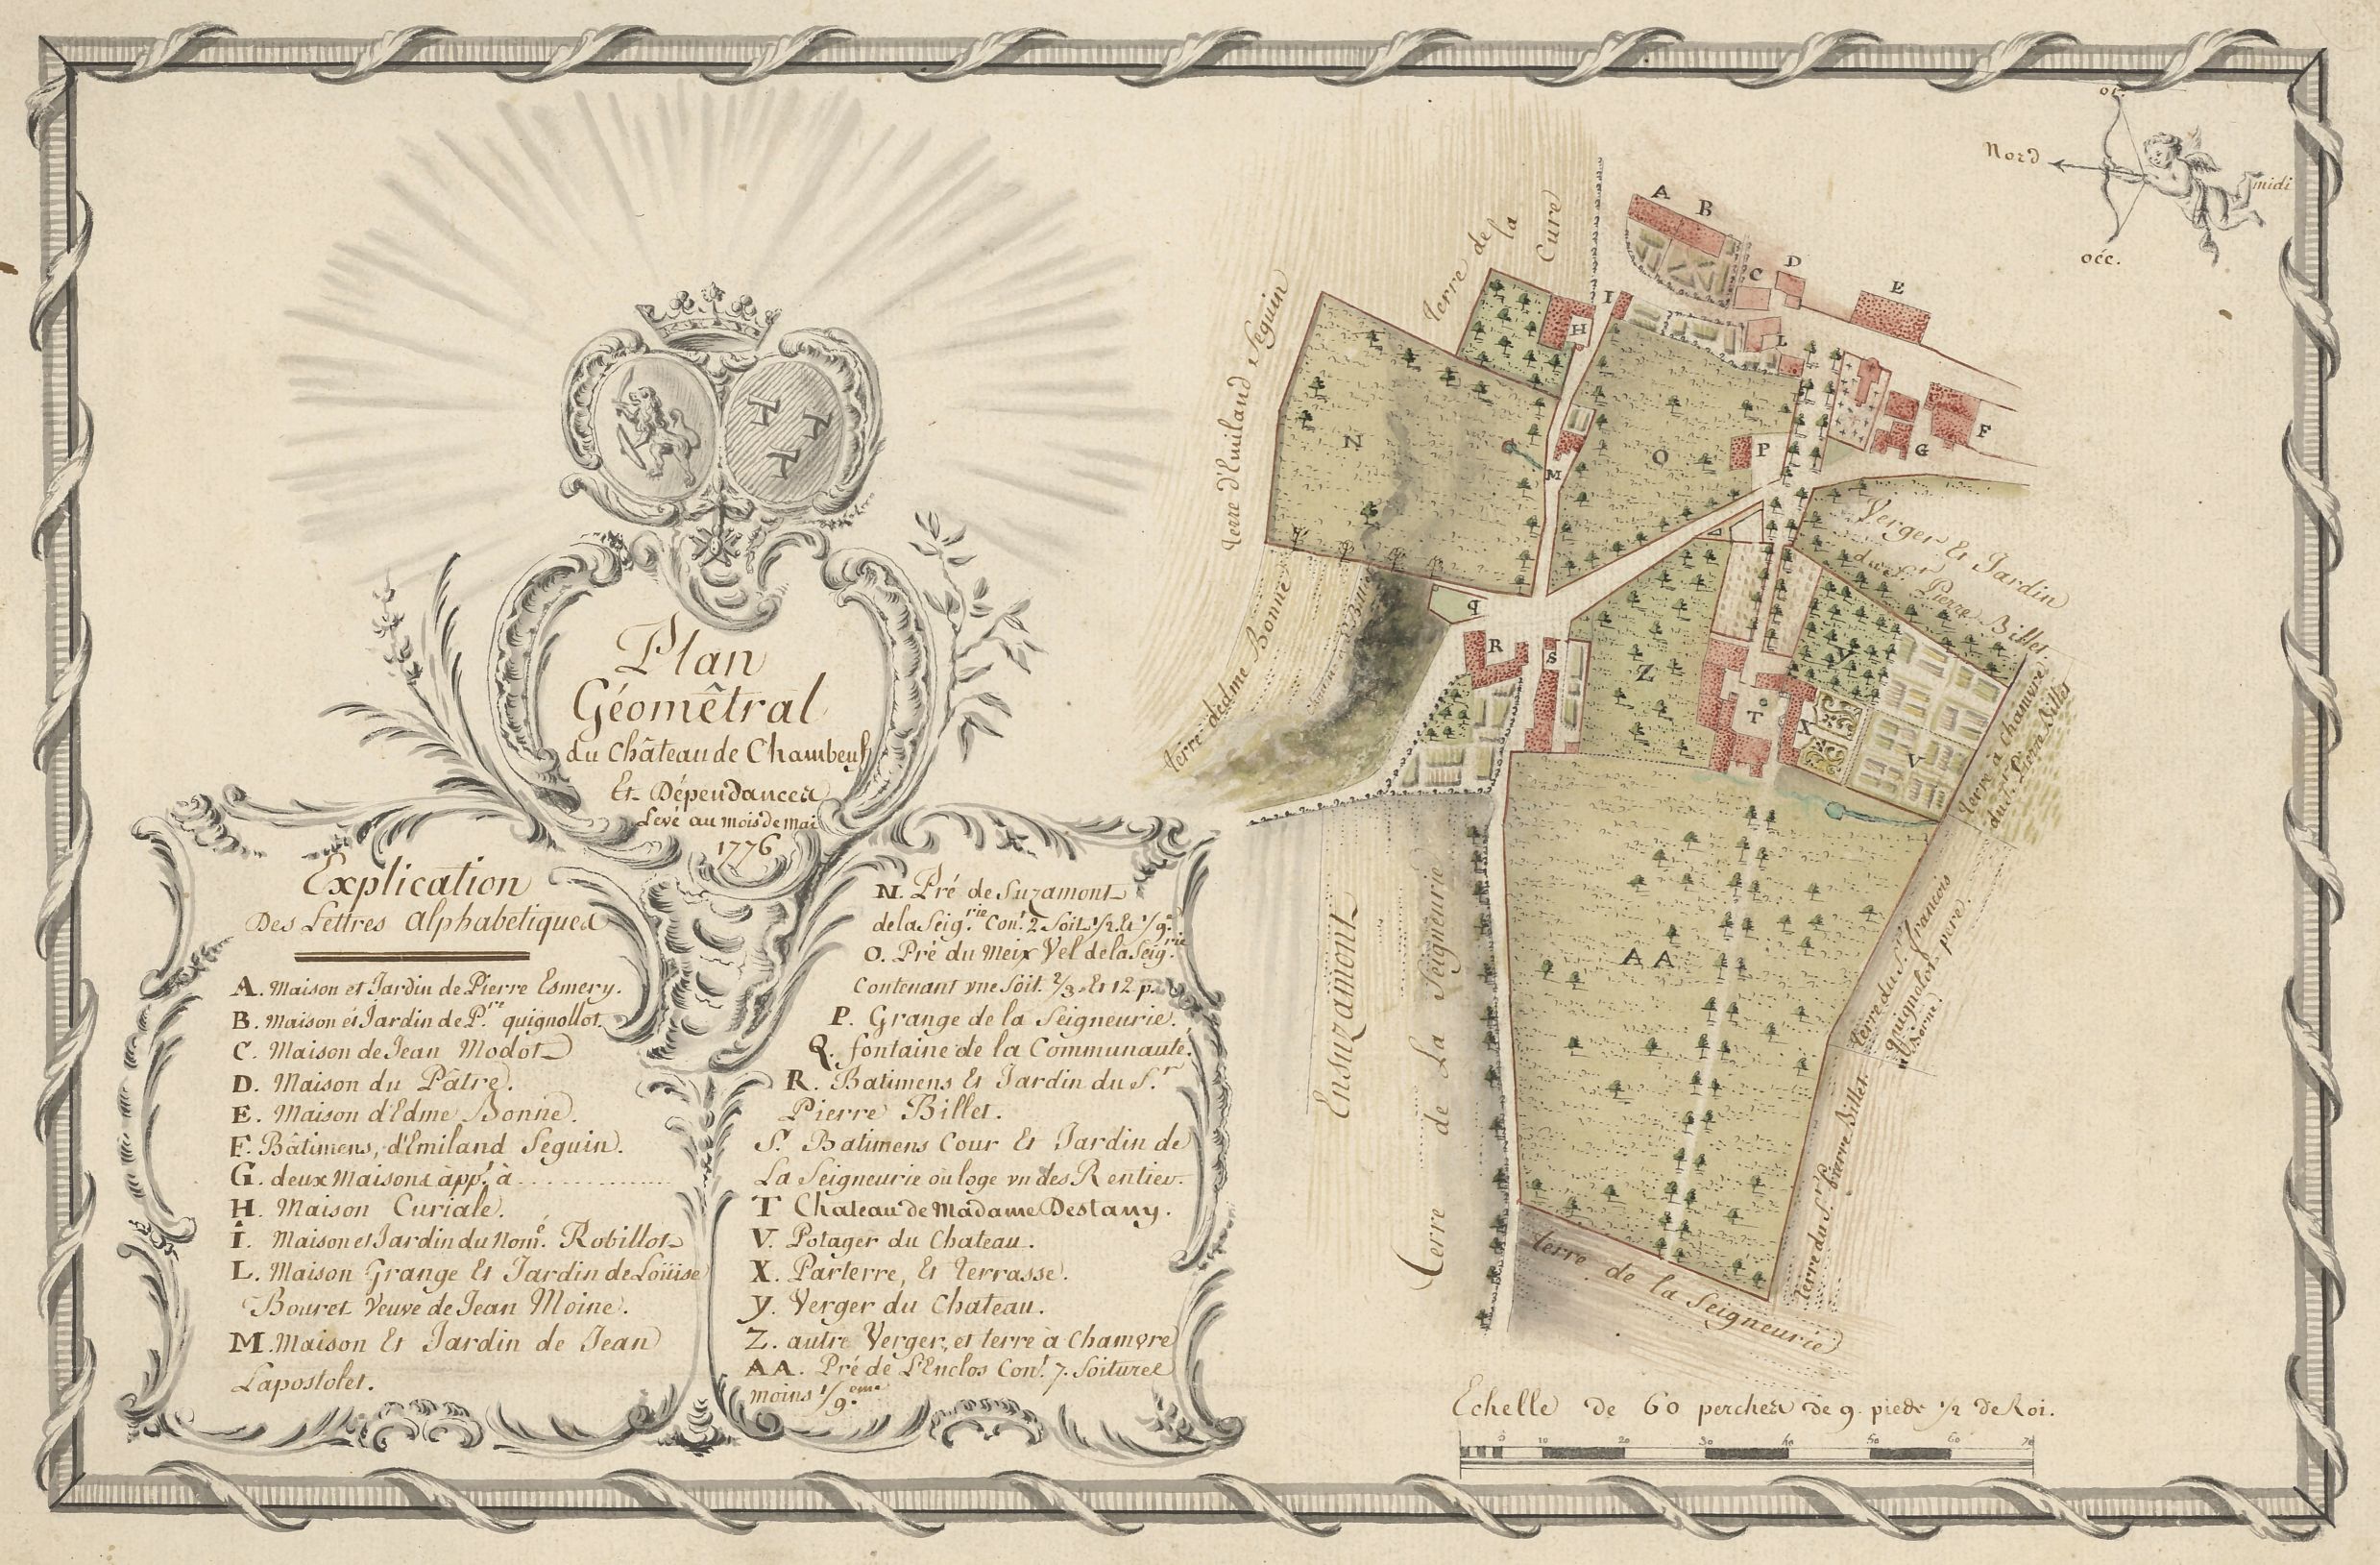 Plan
Géomêtral
du Château de Chambeuf
Et Dépendances
Levé au mois de mai
1776
Explication
Des Lettres Alphabetiques
A. Maison et Jardin de Pierre Esmery.
B. Maison et Jardin de P.re quignollot.
C. Maison de Jean Modot
D. Maison du Pâtre.
E. Maison d'Edme Bonne.
F. Bâtimens, d'Emiland Seguin.
G. deux Maisons app.t à..............
H. Maison Curiale.
I. Maison et Jardin du Nom.é Robillot
L. Maison Grange Et Jardin de Loüise
Bouret Veuve de Jean Moine.
M. Maison Et Jardin de Jean
Lapostolet.
N. Pré de Suzamont
de la Seig.rie Con.t 2 Soit. 1/2 Et 1/9.e
O. Pré du Meix Vel de la Seig.rie
Contenant vne Soit. 2/3 Et 12 p.
P. Grange de la Seigneurie.
Q. fontaine de la Communauté.
R. Batimens Et Jardin du S.r
Pierre Billet.
S. Batimens Cour Et Jardin de
La Seigneurie ou loge vn des Rentier.
T Chateau de Madame Destany.
V. Potager du Chateau.
X. Parterre, Et Terrasse.
y. Verger du Chateau.
Z. autre Verger, et terre à Chamvre
AA. Pré de L'Enclos Con.t 7. Soitures
moins 1/9.eme
or.
Nord
midi
occ.
A
B
C
D
E
F
G
H
I
L
M
N
O
P
q
R
S
T
V
X
y
Z
AA
terre d'Emiland Seguin
terre de la Cure
terre d'edme Bonne
Verger Et Jardin
du S.r Pierre Billet
terre à Chamvre
du S.r Pierre Billet
terre du S.r francois
quignolot pere.
terre du S.r Pierre Billet.
terre de la Seigneurie
Terre de La Seigneurie
Ensuzamont
Echelle de 60 perches de 9 pieds 1/2 de Roi.
5 10 20 30 40 50 60 70